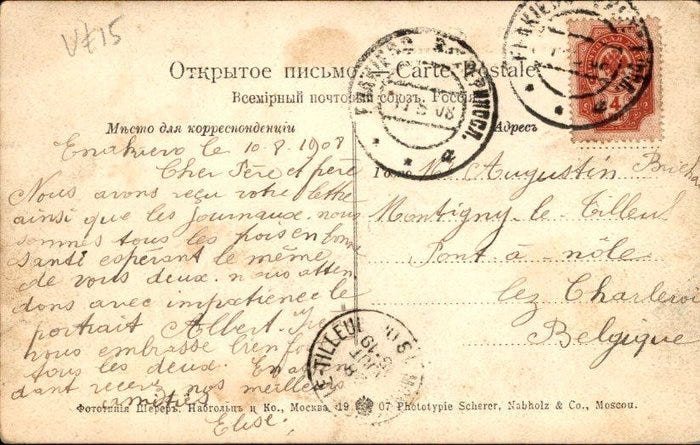 V£15
Открытое письмо. — Carte Postale.
Всемірный почтовый союзъ. Россія
Мѣсто для корреспонденціи
Адресъ
Enakievo le 10-8-1908
Cher Père et
Nous avons reçu votre lettre
ainsi que les journaux. nous
sommes tous les trois en bonne
santé espérant le même
de vous deux. nous atten
dons avec impatience le
portrait Albert.
vous embrasse bien fort
tous les deux. En atten
dant recevez nos meilleurs
amitiés
Elise.
M. Augustin
Montigny-le-Tilleul
Pont-à-nôle
lez Charleroi
Belgique
4
11 8 08
LE-TILLEUL
Фототипія Шереръ, Набгольцъ и Ко., Москва. 19 07 Phototypie Scherer, Nabholz & Co., Moscou.